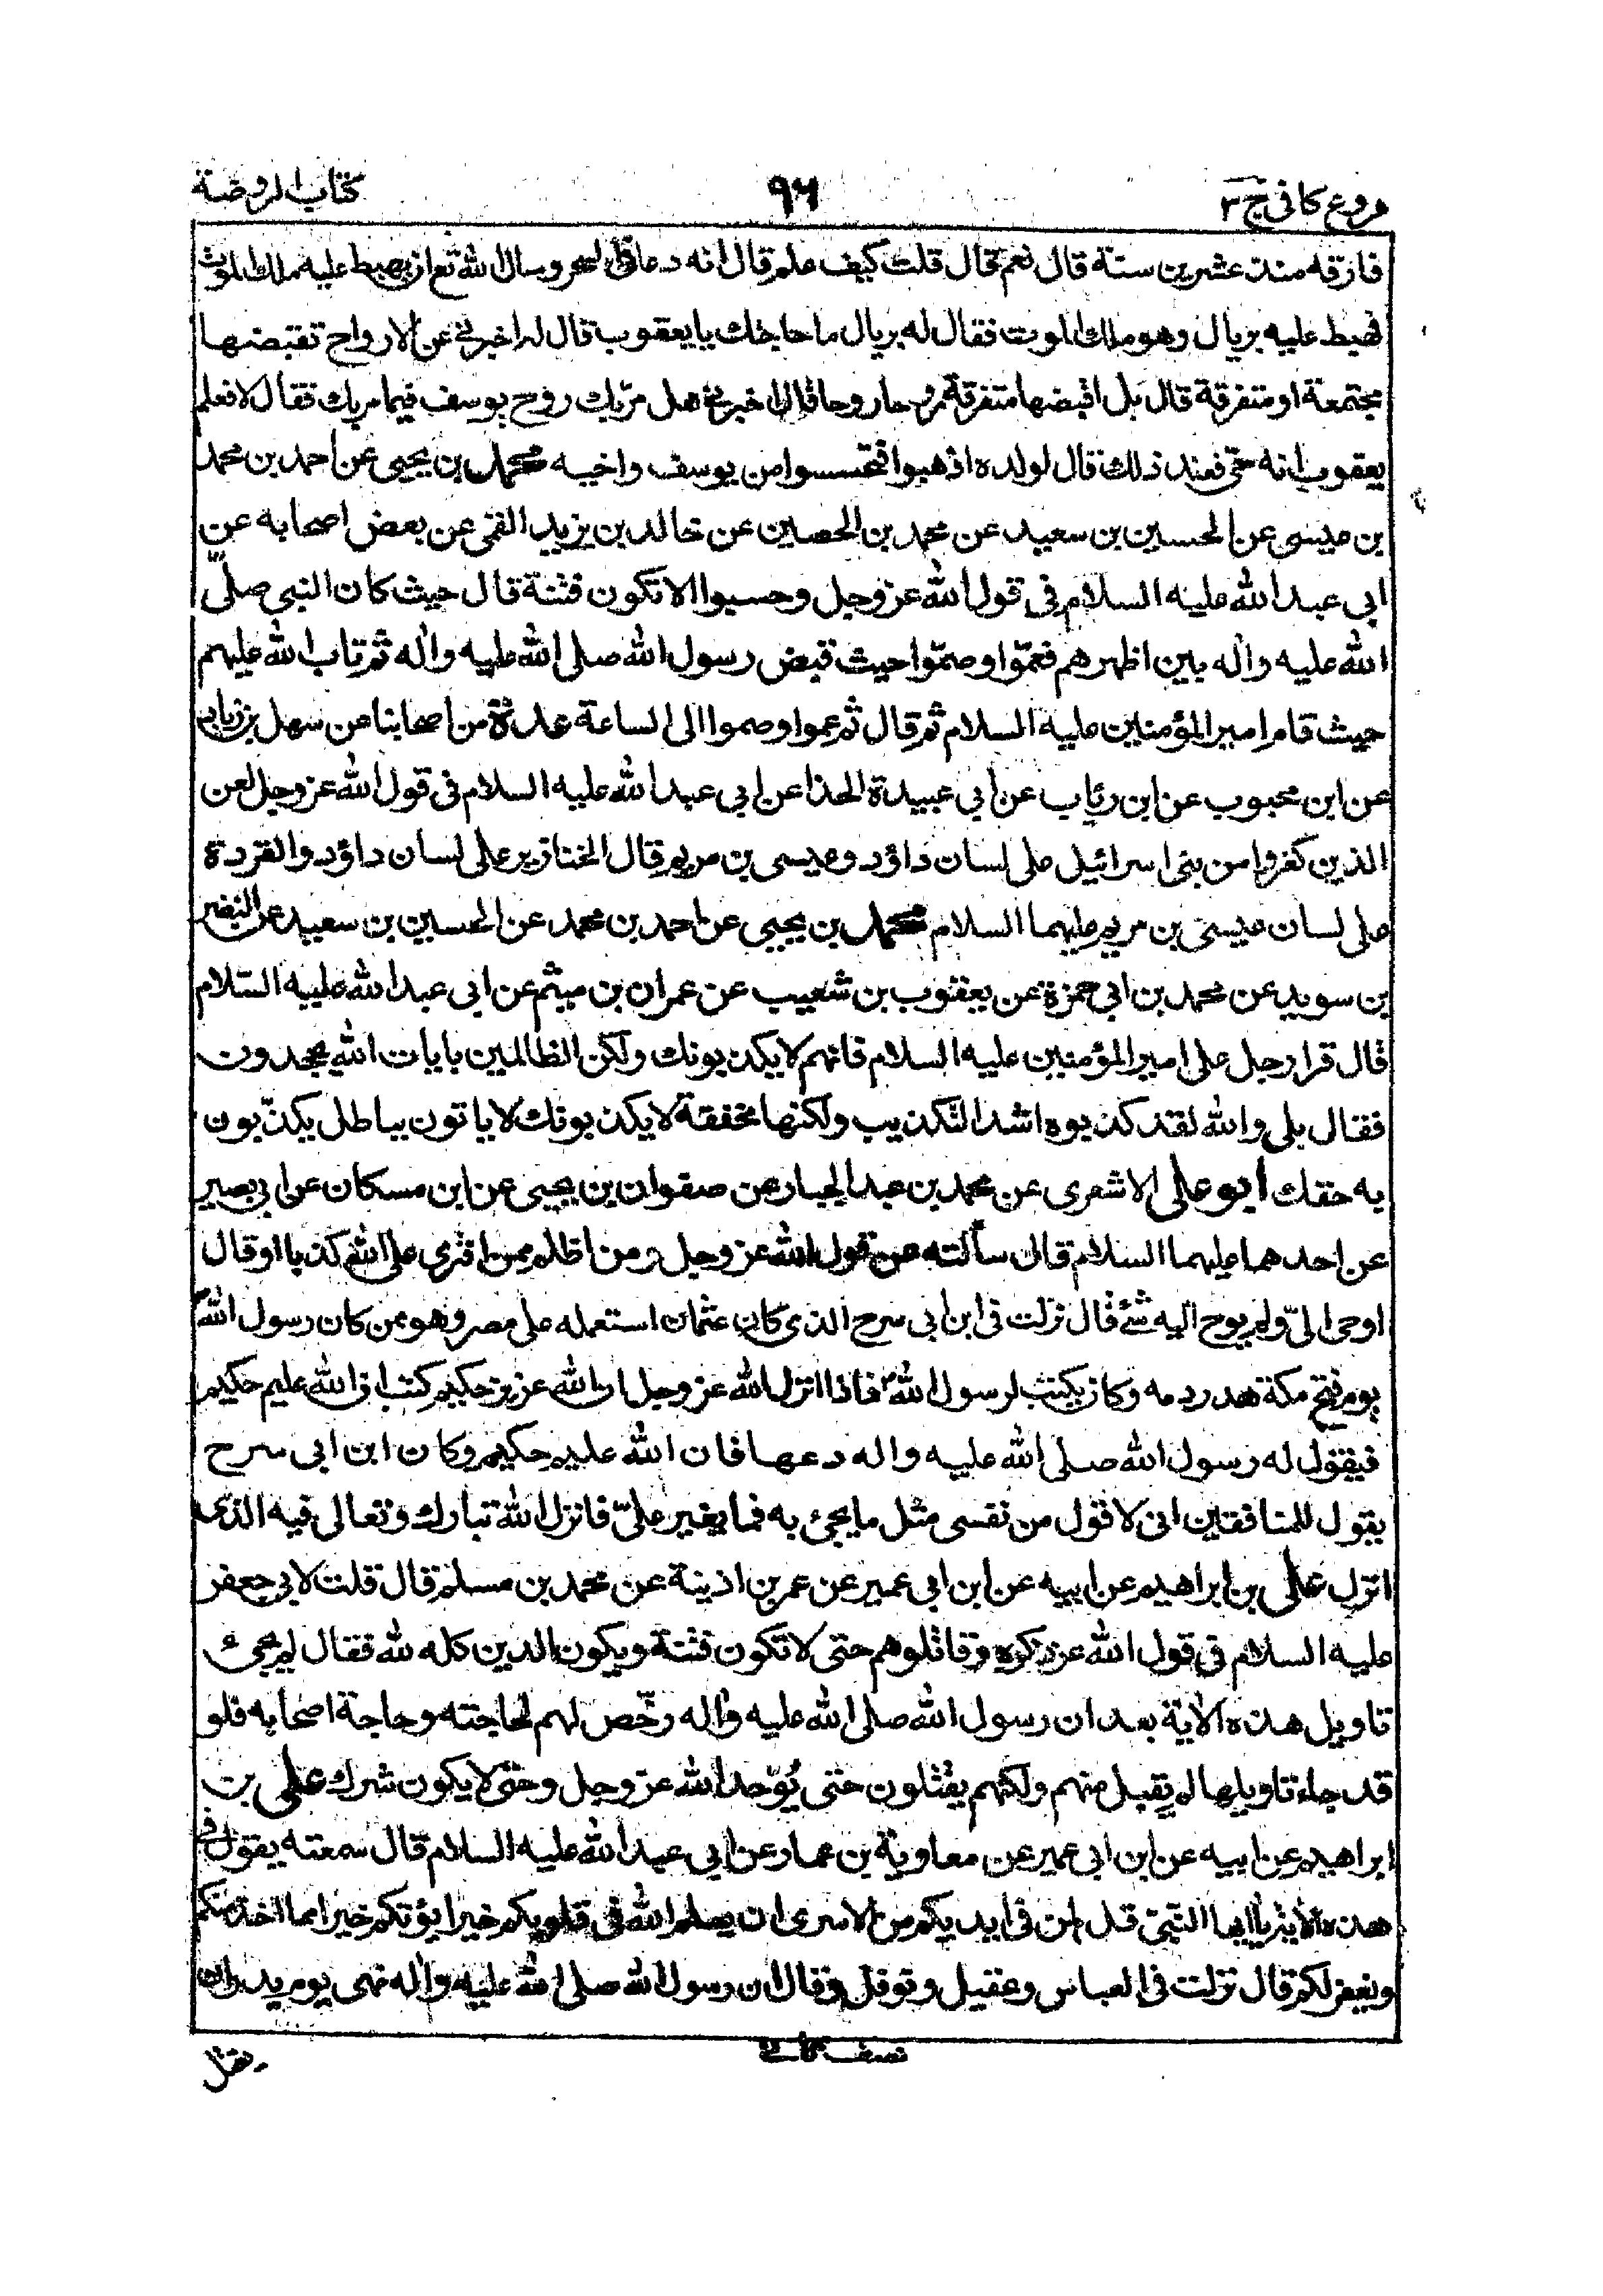 فروع كافى ج ٣
٩٦
كتاب الروضة
فارقه منذ عشرين سنة قال نعم قال قلت كيف علم قال انه دعا فى السحر وسال الله تعا ان يهبط عليه ملك الموت
فهبط عليه بريال وهو ملك الموت فقال له بريال ما حاجتك يا يعقوب قال له اخبرنى عن الارواح تقبضها
مجتمعة او متفرقة قال بل اقبضها متفرقة روحا روحا قال اخبرنى هل مر بك روح يوسف فيما مر بك فقال لا فعلم
يعقوب انه حى فعند ذلك قال لولده اذهبوا فتحسسوا من يوسف واخيه محمد بن يحيى عن احمد بن محمد
بن عيسى عن الحسين بن سعيد عن محمد بن الحصين عن خالد بن يزيد القمى عن بعض اصحابه عن
ابى عبد الله عليه السلام فى قول الله عز وجل وحسبوا الا تكون فتنة قال حيث كان النبى صلّى
الله عليه واله بين اظهرهم فعمّوا وصمّوا حيث قبض رسول الله صلى الله عليه واله ثم تاب الله عليهم
حيث قام امير المؤمنين عليه السلام ثم قال ثم عموا وصموا الى الساعة عدة من اصحابنا عن سهل بن زياد
عن ابن محبوب عن ابن رئاب عن ابى عبيدة الحذا عن ابى عبد الله عليه السلام فى قول الله عز وجل لعن
الذين كفروا من بنى اسرائيل على لسان داؤد وعيسى بن مريم قال الخنازير على لسان داؤد والقردة
على لسان عيسى بن مريم عليهما السلام محمد بن يحيى عن احمد بن محمد عن الحسين بن سعيد عن النضر
بن سويد عن محمد بن ابى حمزة عن يعقوب بن شعيب عن عمران بن ميثم عن ابى عبد الله عليه السّلام
قال قرا رجل على امير المؤمنين عليه السلام فانهم لا يكذبونك ولكن الظالمين بايات الله يجحدون
فقال بلى والله لقد كذبوه اشد التكذيب ولكنها مخففة لا يكذبونك لا ياتون بباطل يكذّبون
به حقك ابو على الاشعرى عن محمد بن عبد الجبار عن صفوان بن يحيى عن ابن مسكان عن ابى بصير
عن احدهما عليهما السلام قال سألته عن قول الله عز وجل ومن اظلم ممن افترى على الله كذبا او قال
اوحى الىّ ولم يوح اليه شئ قال نزلت فى ابن ابى سرح الذى كان عثمان استعمله على مصر وهو ممن كان رسول الله ص
يوم فتح مكة هدر دمه وكان يكتب لرسول الله ص فاذا انزل الله عز وجل ان الله عزيز حكيم كتب ان الله عليم حكيم
فيقول له رسول الله صلى الله عليه واله دعها فان الله عليم حكيم وكان ابن ابى سرح
يقول للمنافقين انى لاقول من نفسى مثل ما يجئ به فما يغير علىّ فانزل الله تبارك وتعالى فيه الذى
انزل على بن ابراهيم عن ابيه عن ابن ابى عمير عن عمر بن اذينة عن محمد بن مسلم قال قلت لابى جعفر
عليه السلام فى قول الله عز ذكره وقاتلوهم حتى لا تكون فتنة ويكون الدين كله لله فقال لم يجئ
تاويل هذه الاية بعد ان رسول الله صلى الله عليه واله رخّص لهم لحاجته وحاجة اصحابه فلو
قد جاء تاويلها لم يقبل منهم ولكنهم يقتلون حتى يُوحد الله عز وجل وحتى لا يكون شرك على بن
ابراهيم عن ابيه عن ابن ابى عمير عن معاوية بن عمار عن ابى عبد الله عليه السلام قال سمعته يقول فى
هذه الاية يا ايها النبى قل لمن فى ايديكم من الاسرى ان يعلم الله فى قلوبكم خيرا يؤتكم خيرا مما اخذ منكم
ويغفر لكم قال نزلت فى العباس وعقيل ونوفل وقال ان رسول الله صلى الله عليه واله نهى يوم بدر ان
يقتل